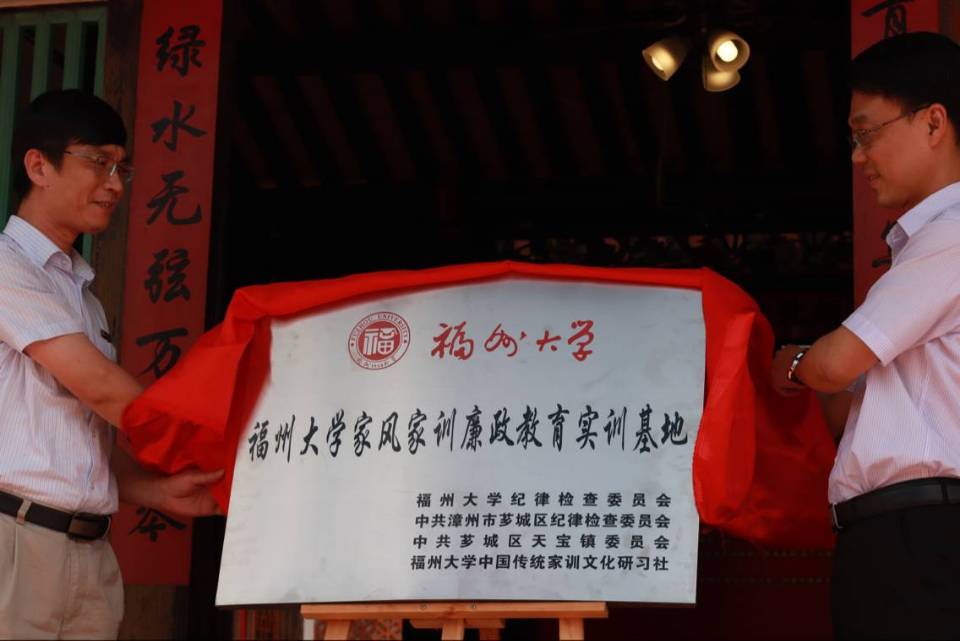 绿水无弦万
育
FUZHOU UNIVERSITY
福
福州大学
福州大学家风家训廉政教育实训基地
福州大学纪律检查委员会
中共漳州市芗城区纪律检查委员会
中共芗城区天宝镇委员会
福州大学中国传统家训文化研习社